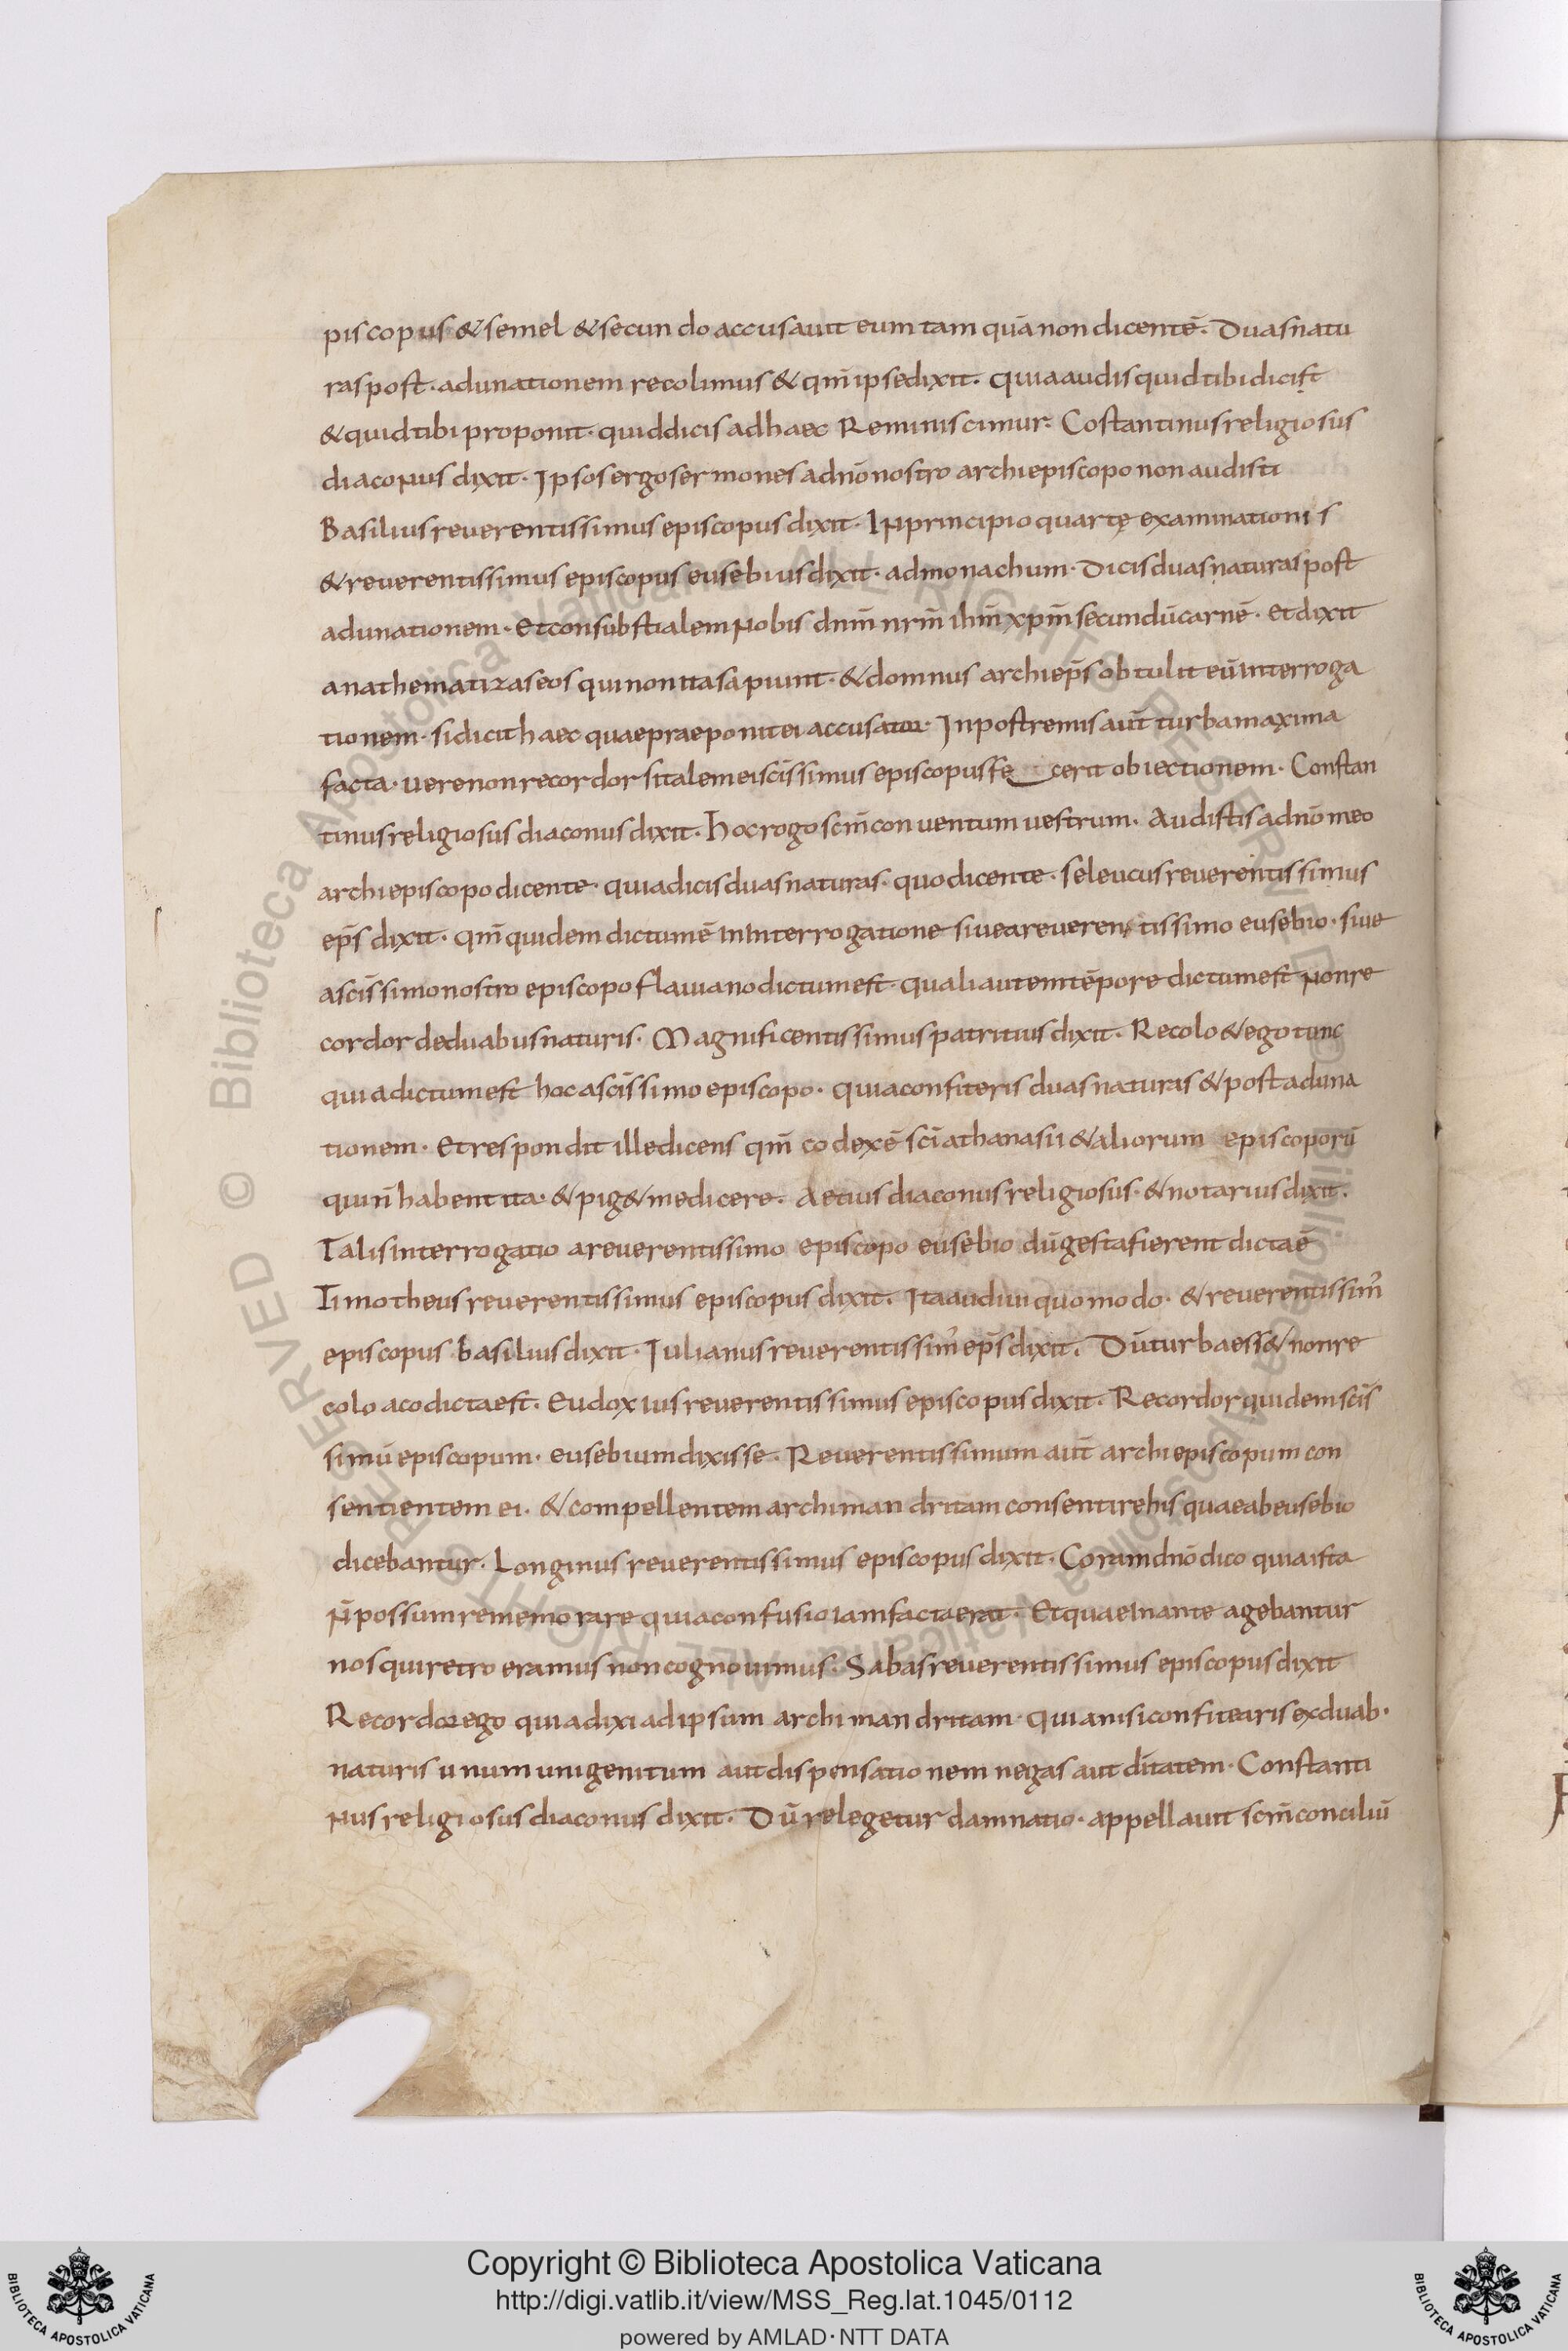 piscopus & semel & secundo accusauit eum tam quā non dicentē. Duas natu
ras post. adunationem recolimus & qm̄ ipse dixit. quia audis quid tibi dicit
& quid tibi proponit. quid dicis ad haec Reminiscimur. Costantinus religiosus
diaconus dixit. Ipsos ergo sermones a dnō nostro archiepiscopo non audisti
Basilius reuerentissimus episcopus dixit. IN principio quartę examinationis
& reuerentissimus episcopus eusebius dixit. ad monachum. Dicis duas naturas post
adunationem. Et consubstialem nobis dnm̄ nrm̄ ihm̄ xpm̄ secundū carnē. et dixit
anathematizas eos qui non ita sapiunt. & domnus archiep̄s obtulit eū interroga
tionem. si dicit haec quae praeponit ei accusator. In postremis aut̄ turba maxima
facta. uere non recordor si talem ei scīssimus episcopus fe cerit obiectionem. Constan
tinus religiosus diaconus dixit. hoc rogo scm̄ conuentum uestrum. Audistis a dnō meo
archiepiscopo dicente. quia dicis duas naturas. quo dicente. seleucus reuerentissimus
ep̄s dixit. qm̄ quidem dictum ē in interrogatione siue a reueren tissimo eusebio. siue
a scīssimo nostro episcopo flauiano dictum est. quali autem tēpore dictum est non re
cordor de duabus naturis. Magnificentissimus patritius dixit. Recolo & ego tunc
quia dictum est hoc a scīssimo episcopo. quia confiteris duas naturas & post aduna
tionem. Et respondit ille dicens qm̄ codex ē scī athanasii & aliorum episcoporū
qui n̄ habent ita. & pig& me dicere. Aetius diaconus religiosus. & notarius dixit.
Talis interrogatio a reuerentissimo episcopo eusebio dū gesta fierent dicta ē
Timotheus reuerentissimus episcopus dixit. Ita audiui quomodo. & reuerentissim'
episcopus basilius dixit. Iulianus reuerentissim' ep̄s dixit. Dū turba ess& non re
colo a co dicta est. Eudoxius reuerentissimus episcopus dixit. Recordor quidem scīs
simū episcopum. eusebium dixisse. Reuerentissimum aut̄ archiepiscopum con
sentientem ei. & compellentem archimandritam consentire his quae ab eusebio
dicebantur. Longinus reuerentissimus episcopus dixit. Coram dnō dico quia ista
n̄ possum rememorare quia confusio iam facta erat. Et quae in ante agebantur
nos qui retro eramus non cognouimus. Sabas reuerentissimus episcopus dixit
Recordor ego quia dixi ad ipsum archimandritam. quia nisi confitearis ex duab.
naturis unum unigenitum aut dispensationem negas aut dītatem. Constanti
nus religiosus diaconus dixit. Dū relegetur damnatio. appellauit scm̄ conciliū
Copyright © Biblioteca Apostolica Vaticana
http://digi.vatlib.it/view/MSS_Reg.lat.1045/0112
powered by AMLAD·NTT DATA
BIBLIOTECA APOSTOLICA VATICANA
BIBLIOTECA APOSTOLICA VATICANA